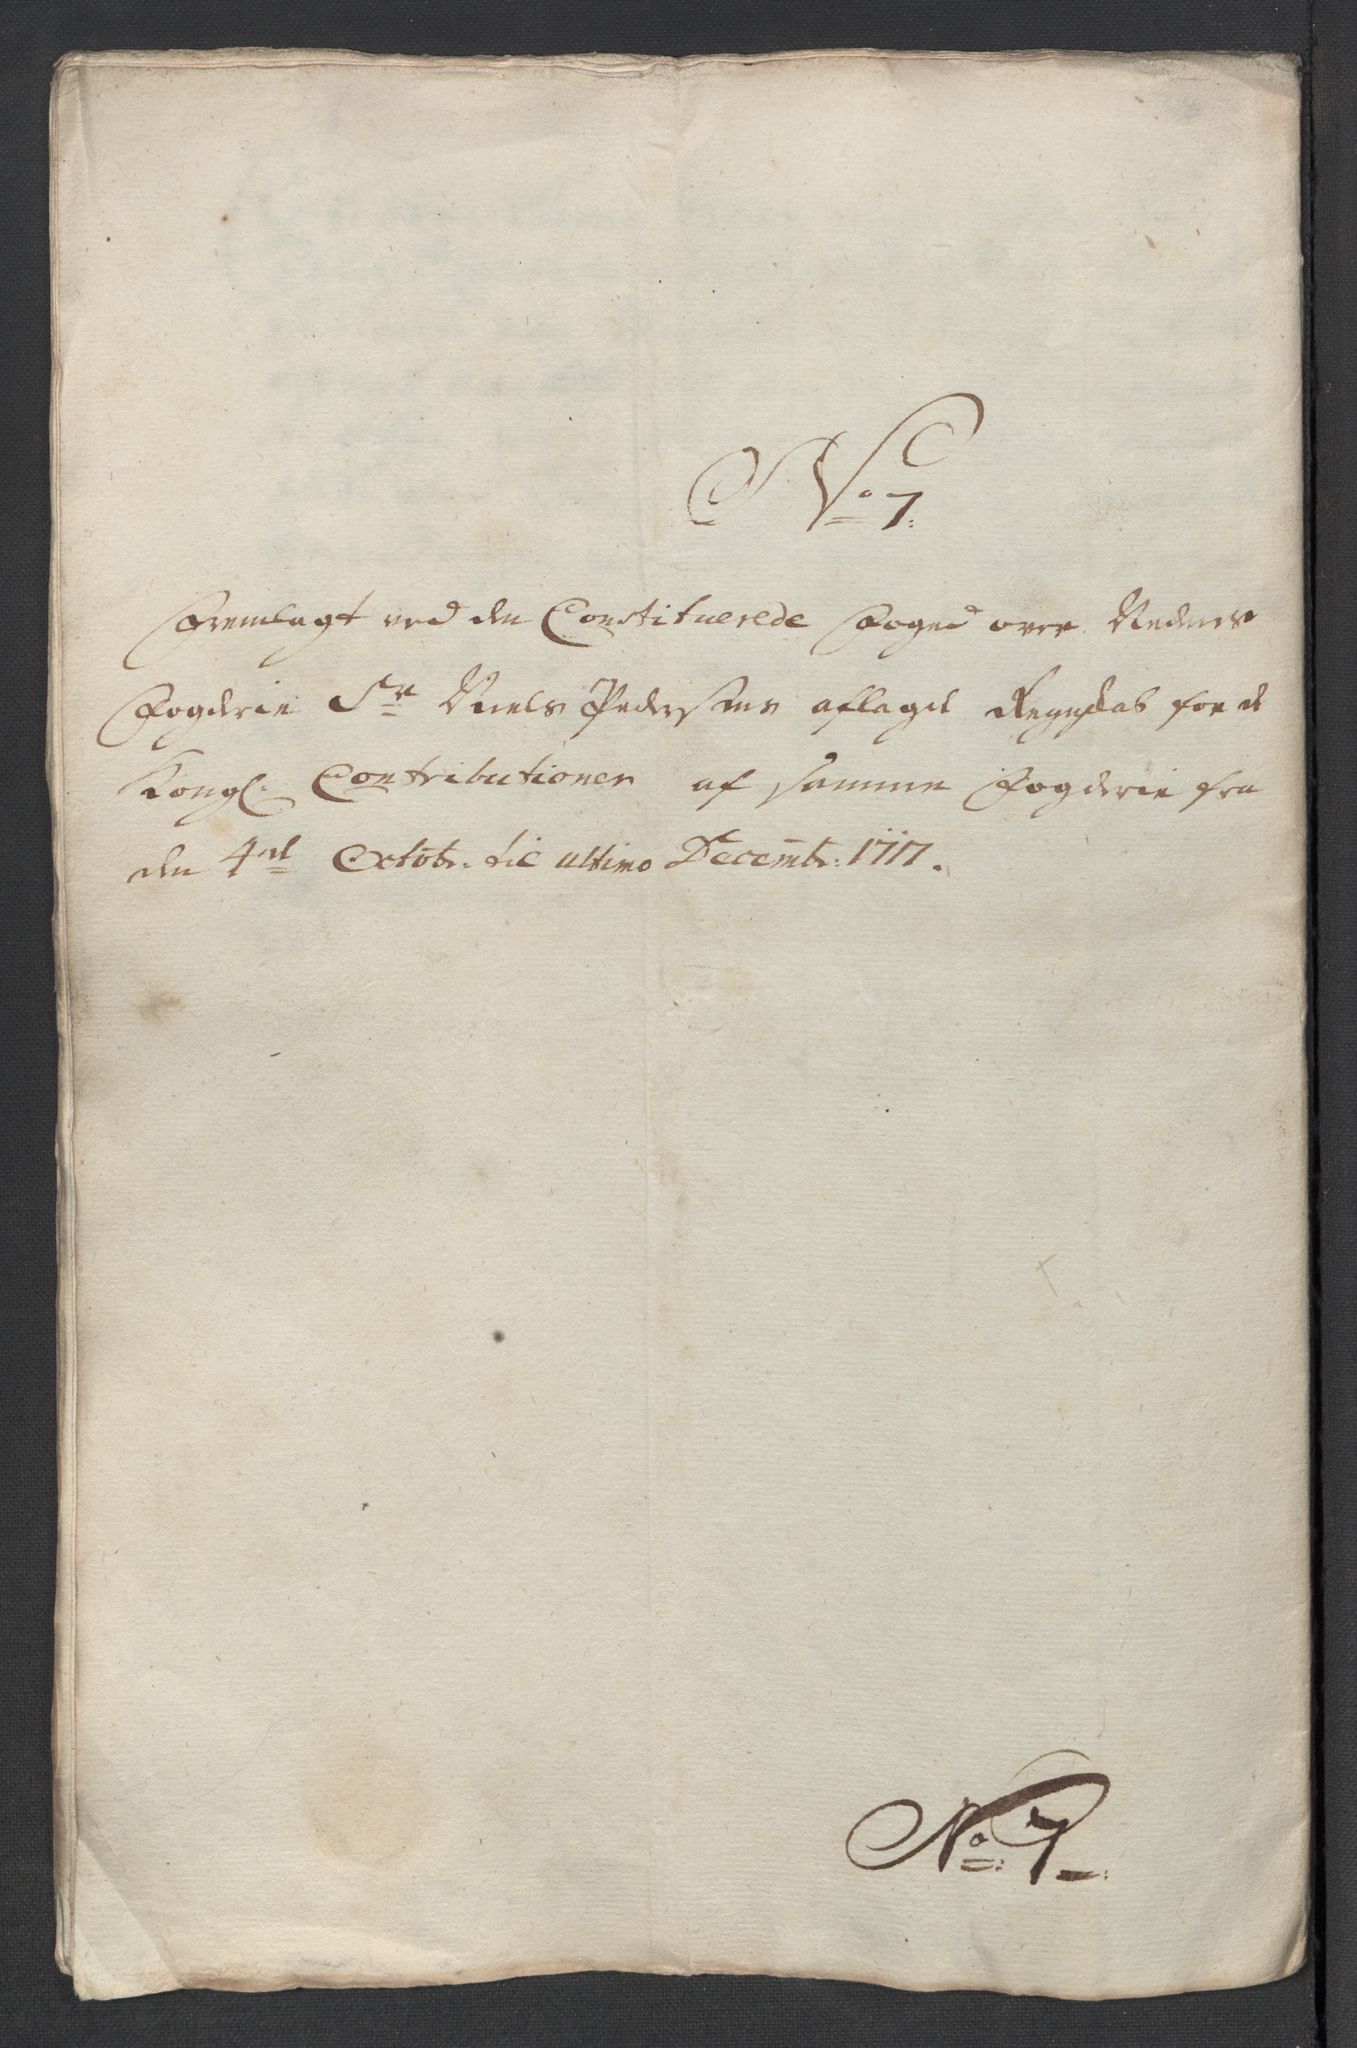 No 7:
Fremlagt ved den Constituerede Foged over Nedenes
Fogderie Sr Niels Pedersens aflagde Regnskab for de
Kongl. Contributioner af samme Fogderie fra
den 4de Octobr. til ultimo Decembr: 1717.
No: 7